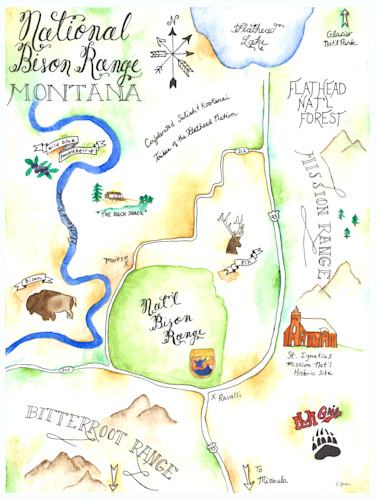 National
Bison Range
MONTANA
N
Flathead
Lake
Glacier
Nat'l Park
FLATHEAD
NAT'L
FOREST
Confederated Salish & Kootenai
Tribes of the Flathead Nation
wild blue
huckleberry
THE DUCK SHACK
212
93
MISSION RANGE
Moiese
X
Elk
Bison
Nat'l
Bison
Range
St. Ignatius
Mission Nat'l
Historic Site
200
X Ravalli
Griz
93
BITTERROOT RANGE
To
Missoula